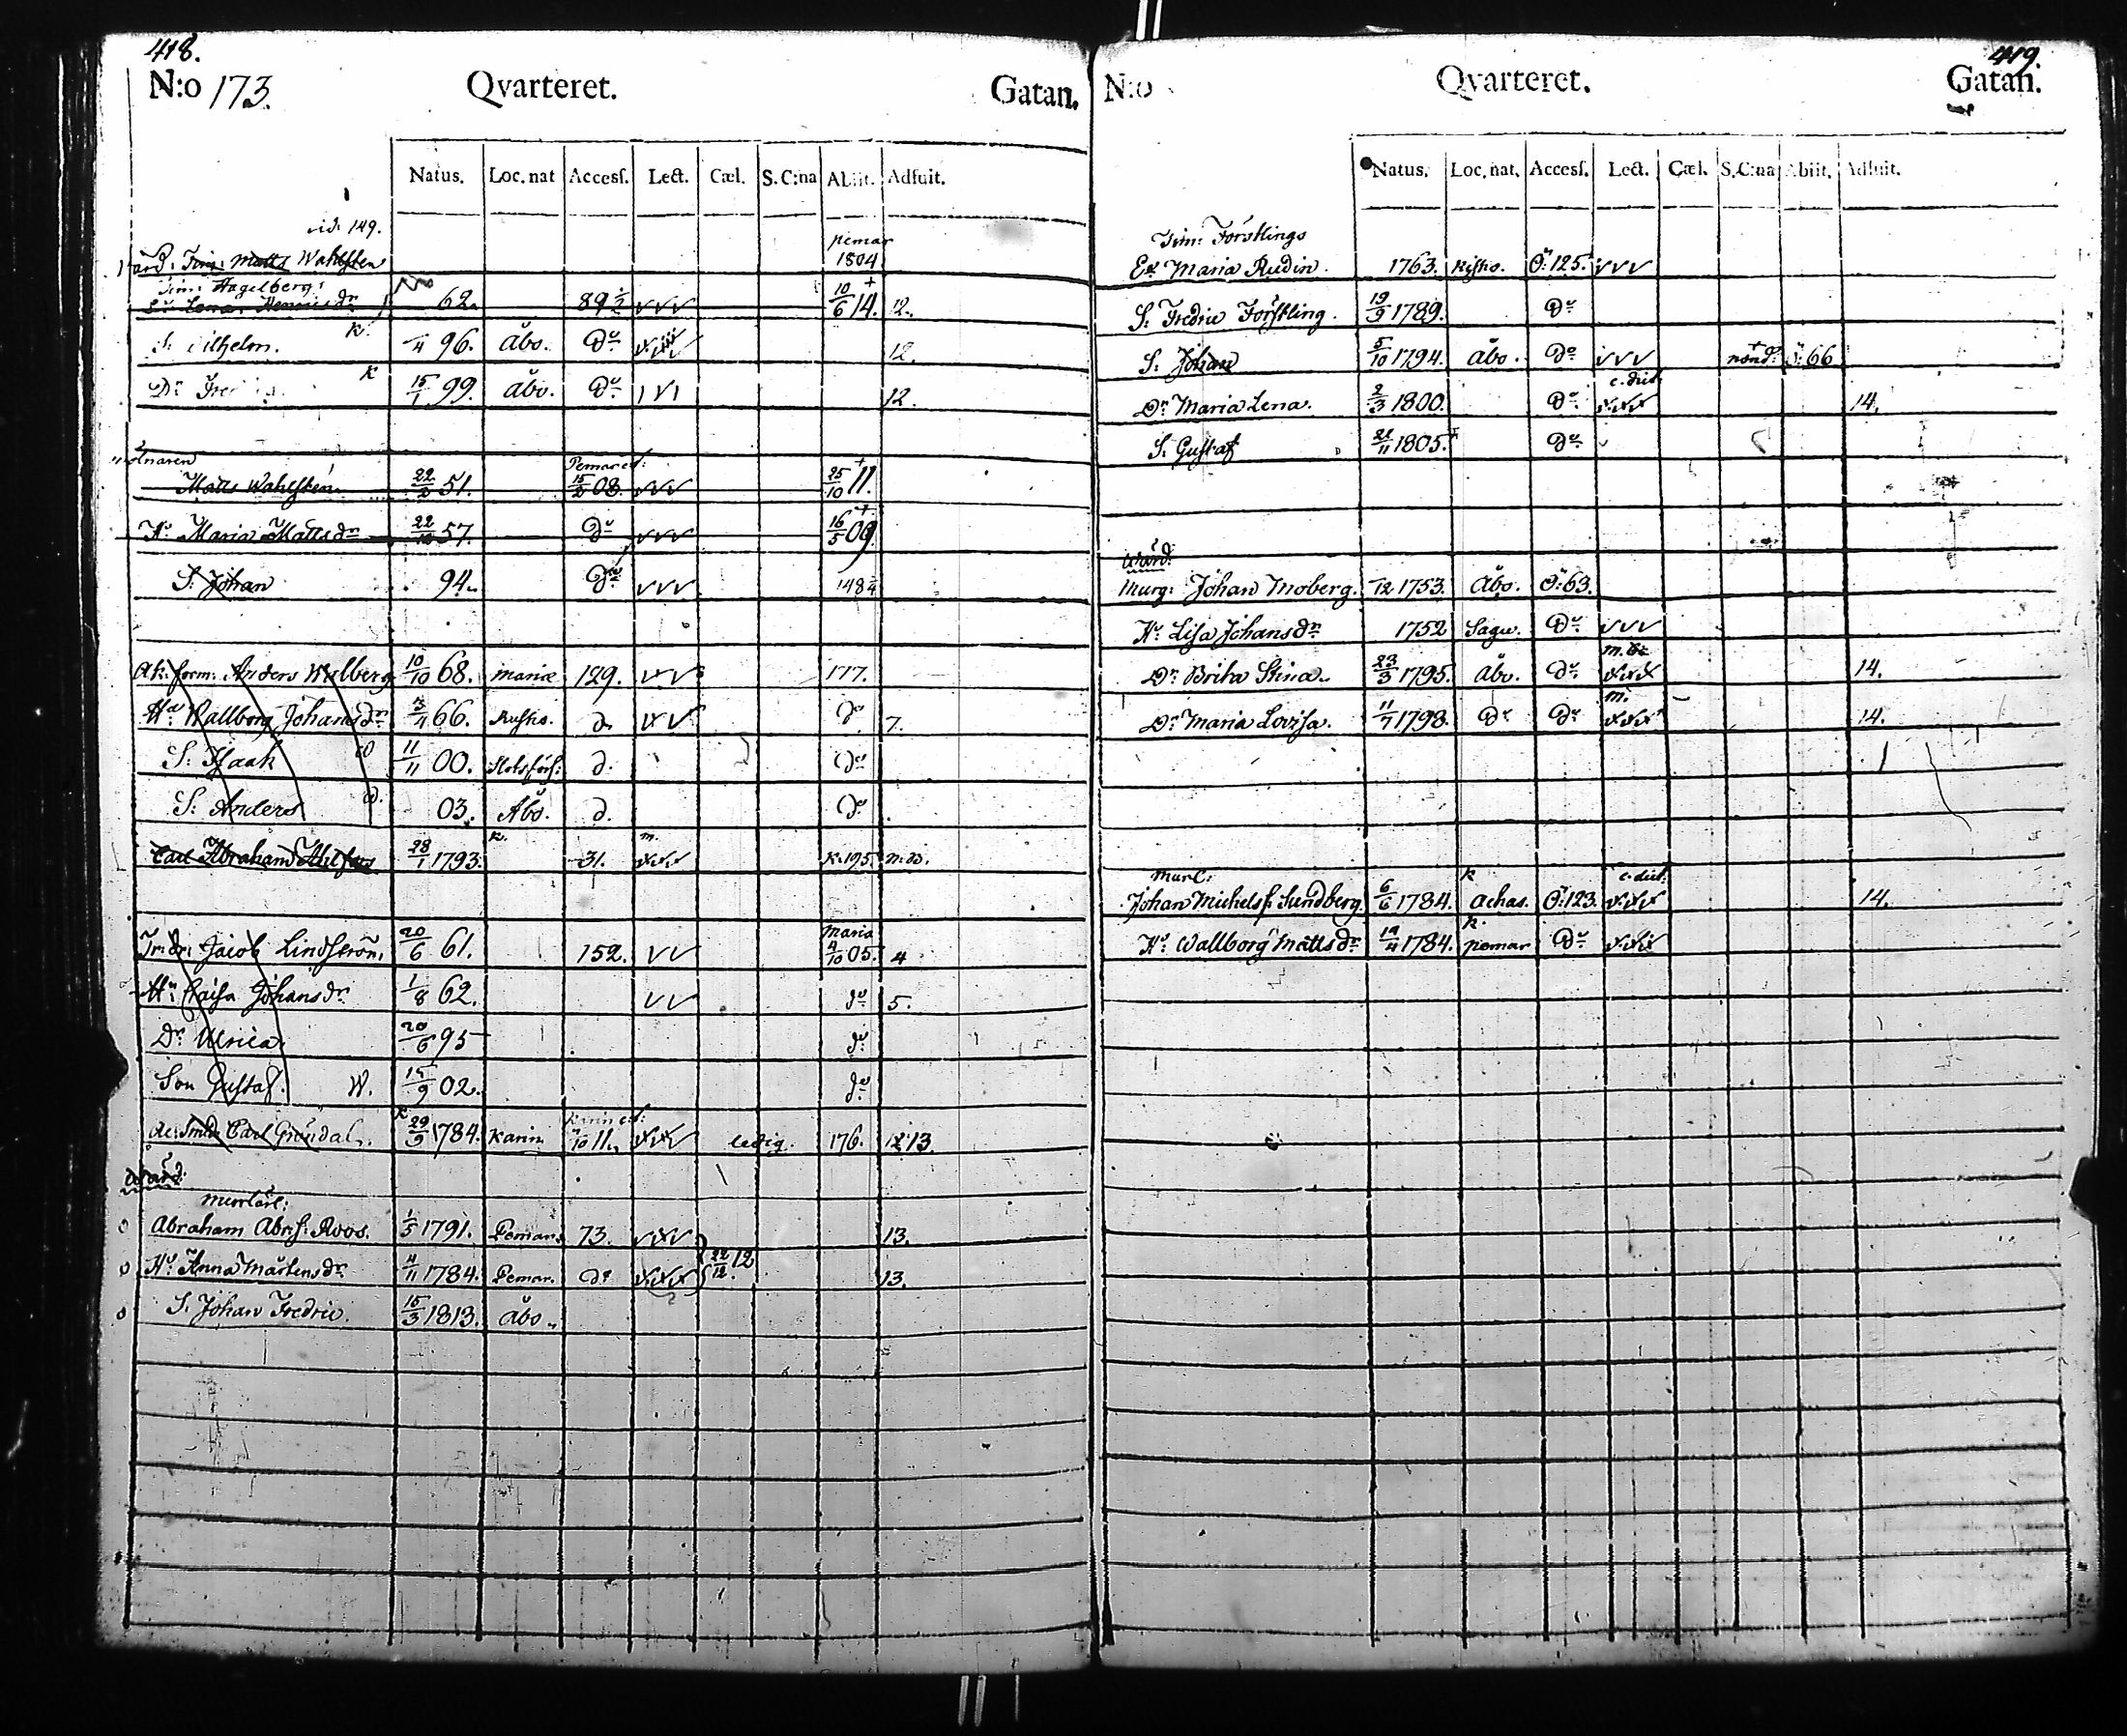 418.
N:o 173. Qvarteret. Gatan.
Natus. Loc. nat Accesſ. Lect. Cæl. S. C:na Abiit. Adfuit.
vid. 149.
pemar
Gård: Tim: Matts Wahlsten 1804
Tim: Hagelberg:
E: Lena Henricsdr 62. 89½ vvv 10/6 14. + 12.
S. Wilhelm. k. /4 96. Åbo. Do 12.
Dr k 15/1 99. Åbo. Do 12.
Pemar
Matts Wahlsten 22/2 51. 15/2 08. vvv 25/10 11. +
Hu Maria Mattsdr 22/10 57. Do vvv 16/5 09. +
S. Johan 94. Do vvv 148½
Ak: form: Anders Wulberg 10/10 68. Mariæ 129. 177.
Hu Wallborg Johansdr /11 66. Rusko. d. do 7.
S. Isaak 11/11 00. d. do
S. Anders 03. Åbo. d. do
k. m.
Carl Abraham 28/1 1793. 31. k. 195.
maria
Jacob Lindström 20/6 61. 152. vv 4/10 05. 4
Hu Caisa Johansdr 1/8 62. vv do 5.
Dr Ulrica 20/6 95 do
Son Gustaf. W. 15/9 02. do
Carl Gröndal. k 29/9 1784. Karin. /10 11. ledig. 176. 12 13.
Wärd:
murlärl:
Abraham Abr:s: Roos. 1/5 1791. Pemar. 73. 13.
22/12 12.
Hu Anna Mårtensdr 4/11 1784. Pemar. do 13.
S. Johan Fredric. 15/3 1813. Åbo.
419.
N:o Qvarteret. Gatan.
Natus. Loc. nat. Accesſ. Lect. Cæl. S.C:na Abiit. Adfuit.
Tim: Förstlings
Ea Maria Rudin. 1763. Ö: 125. vvv
S. Fredric Förstling. 19/9 1789. Do
S. Johan 5/10 1794. Åbo. Do vvv + Ö: 66
c. dict.
Dr Maria Lena. 2/3 1800. Do 14.
S. Gustaf 21/11 1805. Do
Wärd:
Murg: Johan Moberg. /12 1753. Åbo. Ö: 63.
Hu Lisa Johansdr 1752 Sagu. Do vvv
Dr Brita Stina. 23/3 1795. Åbo. Do 14.
m.
Dr Maria Lovisa. 11/7 1798. Do Do 14.
Murl: k c. dict.
Johan Michelss: Sundberg. 6/6 1784. achas. Ö: 123. 14.
k.
Hu Wallborg Mattsdr 14/4 1784. pemar Do